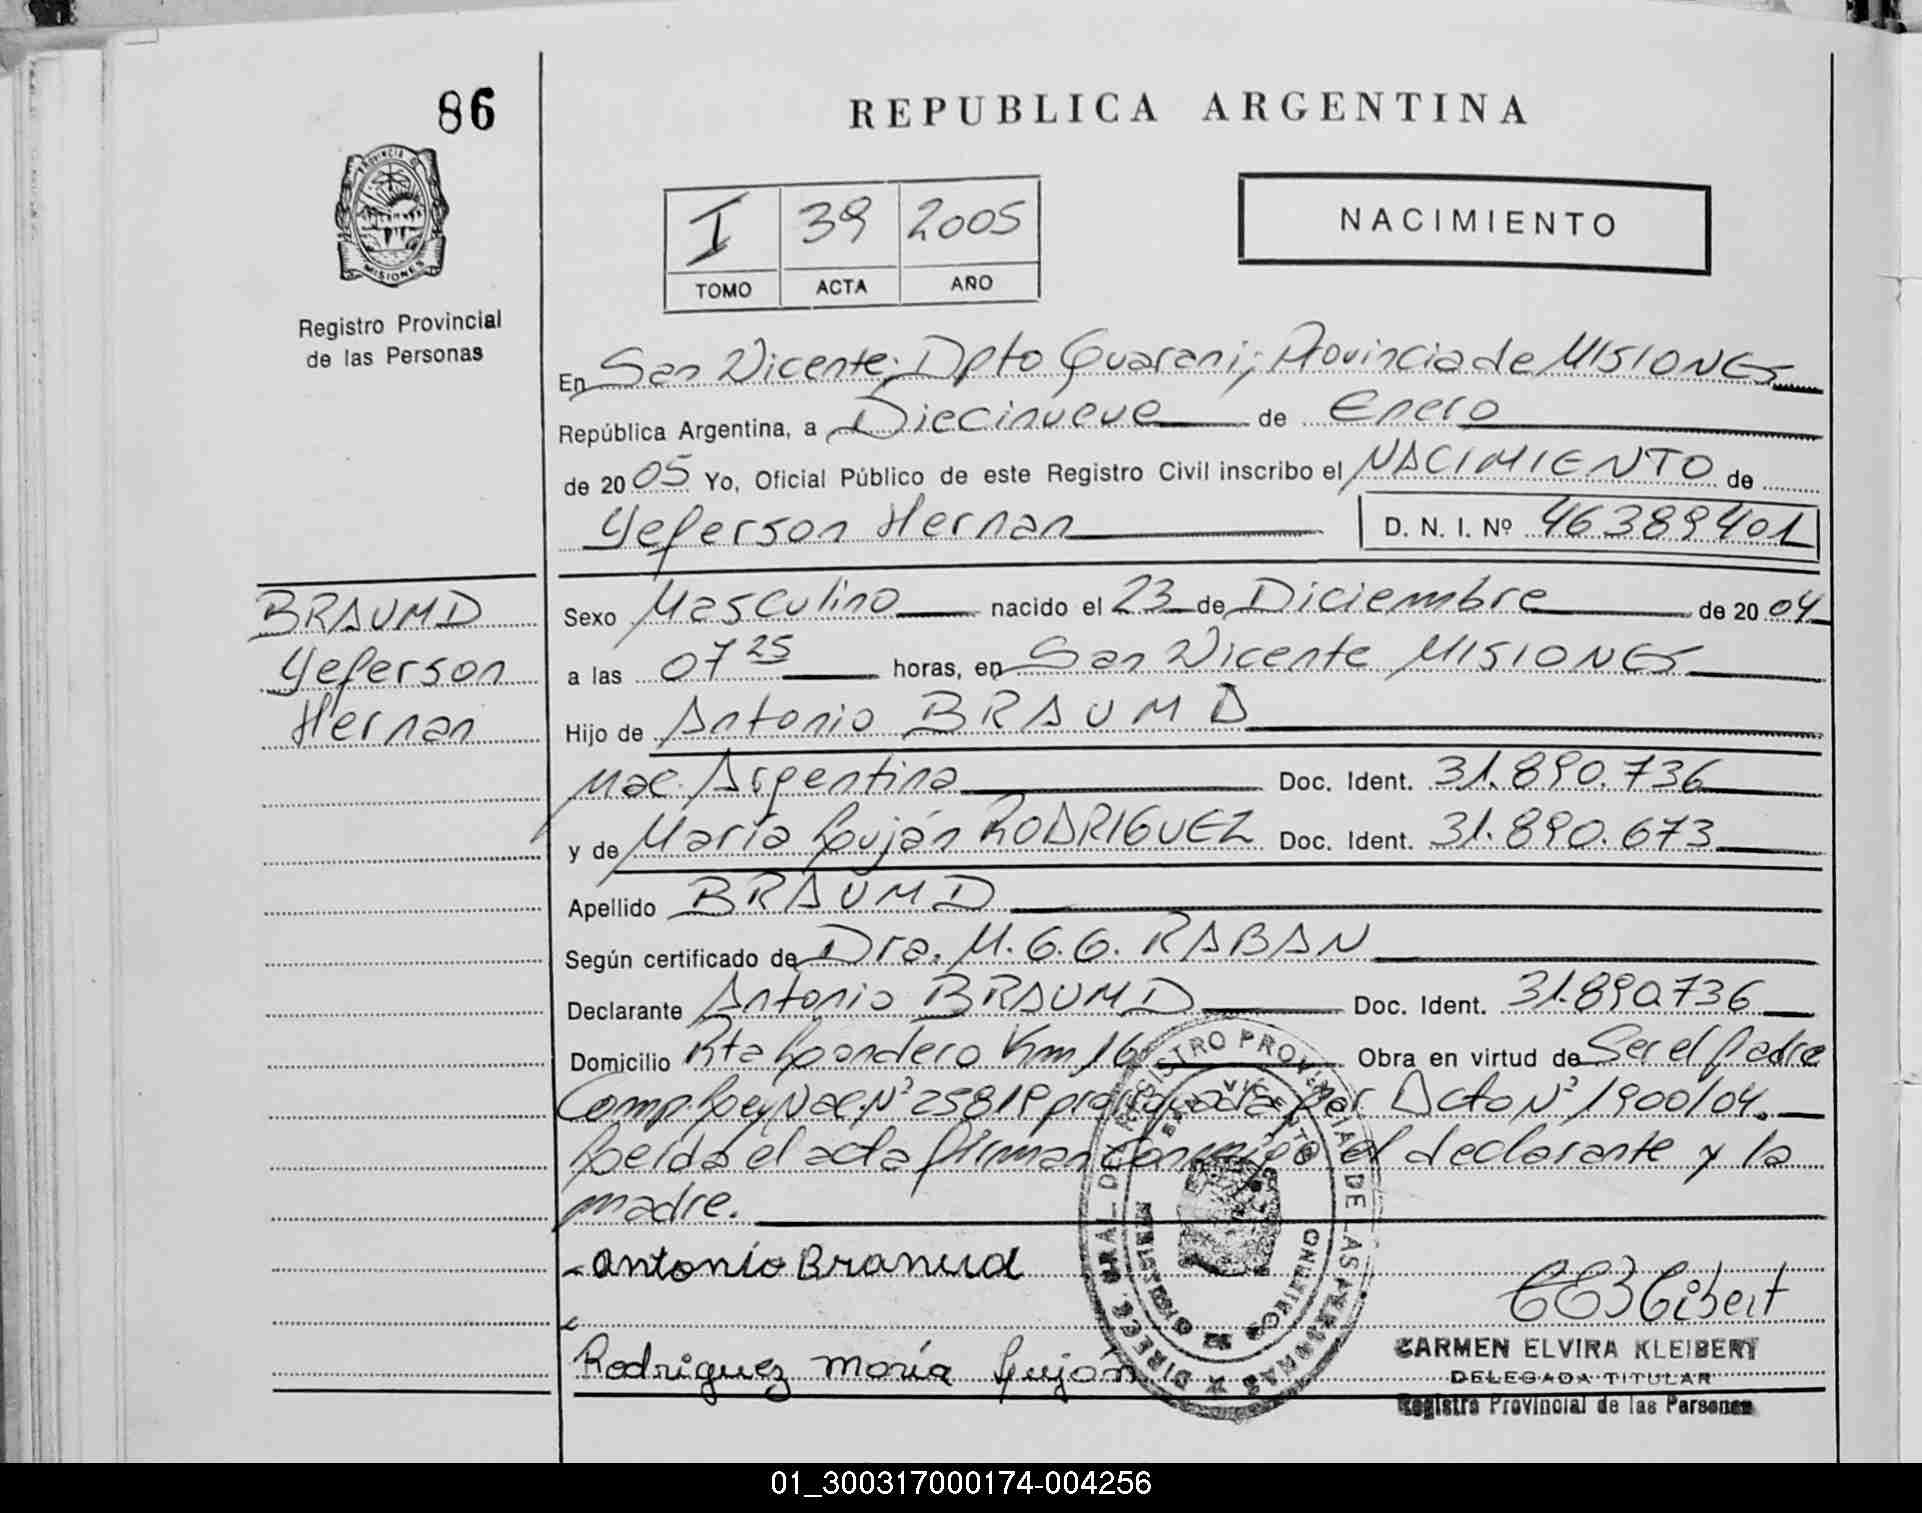 86
REPUBLICA ARGENTINA
PROVINCIA DE
MISIONES
Registro Provincial
de las Personas
I 39 2005
TOMO ACTA AÑO
NACIMIENTO
En San Vicente; Dpto Guarani; Provincia de MISIONES
República Argentina, a Diecinueve de Enero
de 2005 Yo, Oficial Público de este Registro Civil inscribo el NACIMIENTO de
Yeferson Hernan D. N. I. Nº 46389401
BRAUMD
Yeferson
Hernan
Sexo Masculino nacido el 23 de Diciembre de 2004
a las 07 25 horas, en San Vicente MISIONES
Hijo de Antonio BRAUMD
Nac. Argentina Doc. Ident. 31.890.736
y de María Luján RODRIGUEZ Doc. Ident. 31.890.673
Apellido BRAUMD
Según certificado de Dra. M. G. G. RABAN
Declarante Antonio BRAUMD Doc. Ident. 31.890.736
Domicilio Rta Km 16 Obra en virtud de Ser el padre
Comp. Ley Nac. Nº 25819 por Acto Nº 1900/04.
Leída el acta firman conmigo el declarante y la
madre.
Antonio Branud
Rodriguez María Luján
CARMEN ELVIRA KLEIBERT
DELEGADA TITULAR
Registro Provincial de las Personas
01_300317000174-004256